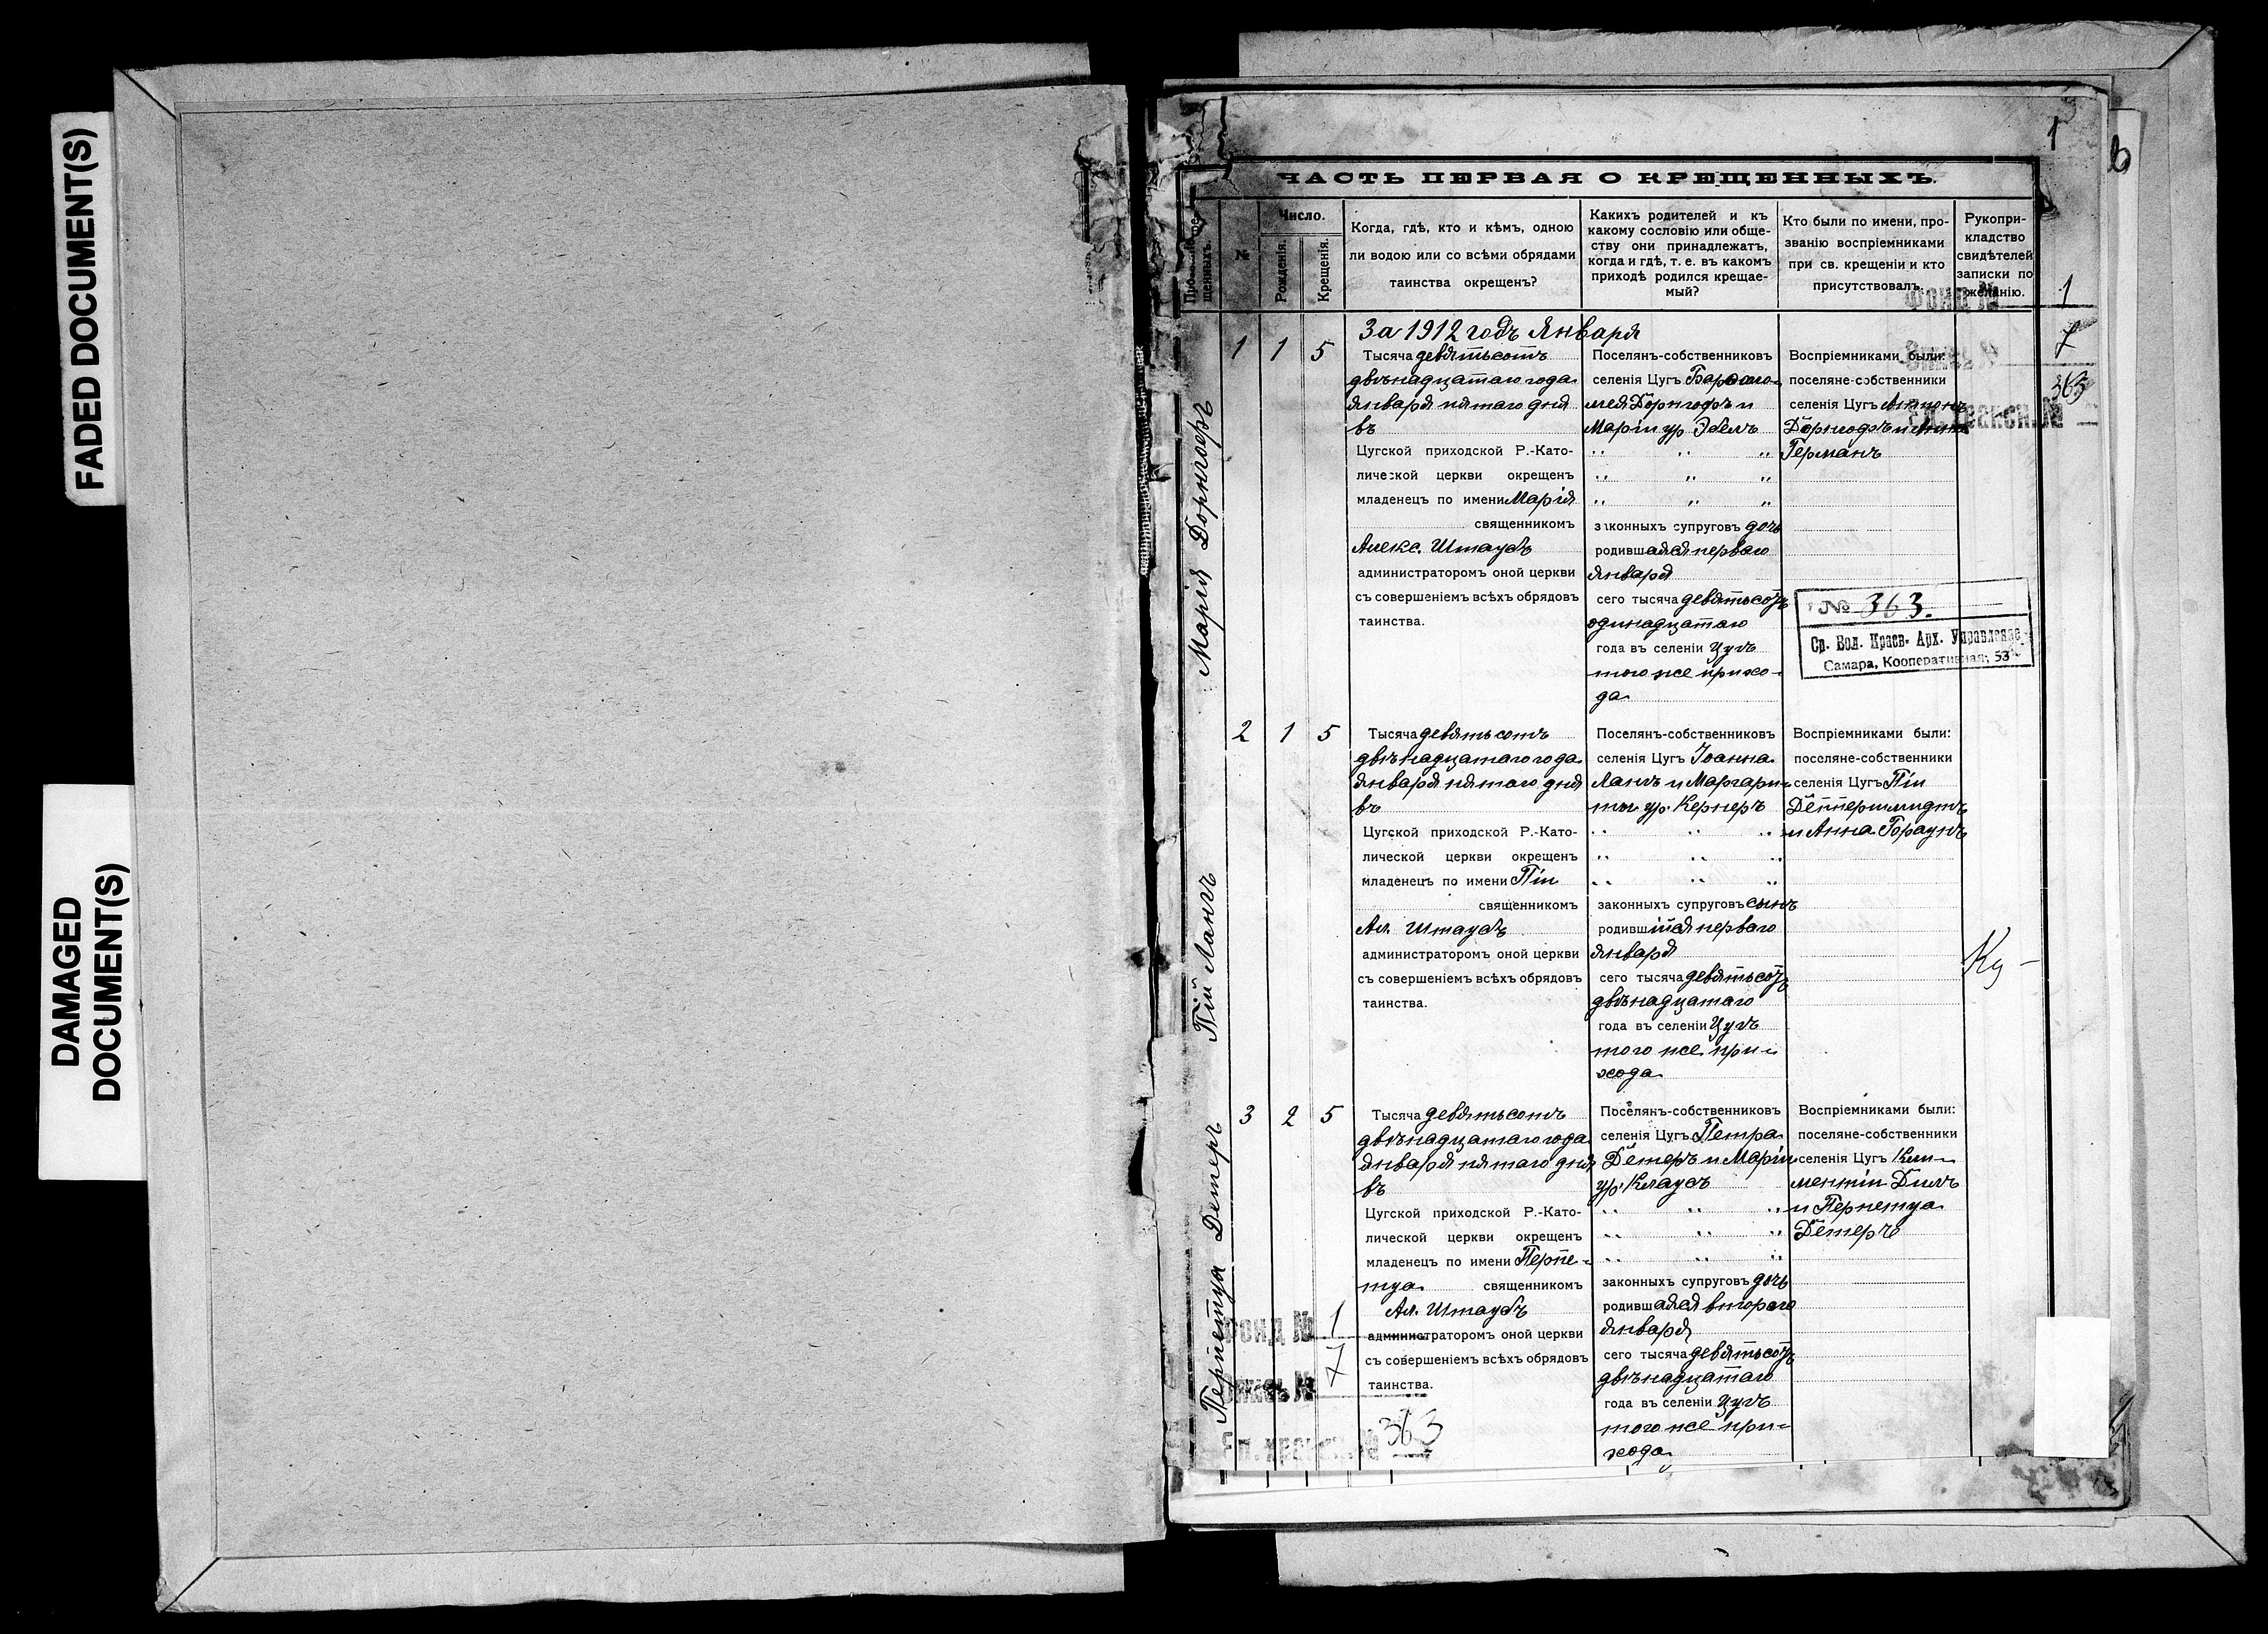 FADED DOCUMENT(S)
DAMAGED
DOCUMENT(S)
1
ЧАСТЬ ПЕРВАЯ О КРЕЩЕННЫХЪ.
щенныхъ.
№
Число.
Рожденія.
Крещенія.
Когда, гдѣ, кто и кѣмъ, одною
ли водою или со всѣми обрядами
таинства окрещенъ?
Какихъ родителей и къ
какому сословію или обще-
ству они принадлежатъ,
когда и гдѣ, т. е. въ какомъ
приходѣ родился крещае-
мый?
Кто были по имени, про-
званію воспріемниками
при св. крещеніи и кто
присутствовалъ.
Рукопри-
кладство
свидѣтелей
записки по
желанію.
Фонд № 1
7
363
За 1912 годъ Января
Марія Дорнгоферъ
1 1 5
Тысяча девятьсотъ
двѣнадцатаго года
января пятаго дня
въ
Цугской приходской Р.-Като-
лической церкви окрещенъ
младенецъ по имени Марія
священникомъ
Алекс. Штаубъ
администраторомъ оной церкви
съ совершеніемъ всѣхъ обрядовъ
таинства.
Поселянъ-собственниковъ
селенія Цугъ Варфоло-
мея Дорнгофъ и
Маріи ур. Эбелъ
" " "
" " "
" " "
законныхъ супруговъ дочь
родившаяся перваго
января
сего тысяча девятьсотъ
одинадцатаго
года въ селеніи Цугъ
того же прихо-
да
Воспріемниками были:
поселяне-собственники
селенія Цугъ Антонъ
Дорнгофъ и Анна
Германъ
№ 363.
Ср. Вол. Краев. Арх. Управление
Самара, Кооперативная, 53
Пій Лангъ
2 1 5
Тысяча девятьсотъ
двѣнадцатаго года
января пятаго дня
въ
Цугской приходской Р.-Като-
лической церкви окрещенъ
младенецъ по имени Пій
священникомъ
Ал. Штаубъ
администраторомъ оной церкви
съ совершеніемъ всѣхъ обрядовъ
таинства.
Поселянъ-собственниковъ
селенія Цугъ Іоанна
Лангъ и Маргари-
ты ур. Кернеръ
" " "
" " "
" " "
законныхъ супруговъ сынъ
родившійся перваго
января
сего тысяча девятьсотъ
двѣнадцатаго
года въ селеніи Цугъ
того же при-
хода
Воспріемниками были:
поселяне-собственники
селенія Цугъ Пій
Деппершмидтъ
и Анна
Перпетуа Детеръ
3 2 5
Тысяча девятьсотъ
двѣнадцатаго года
января пятаго дня
въ
Цугской приходской Р.-Като-
лической церкви окрещенъ
младенецъ по имени Перпе-
туа священникомъ
Ал. Штаубъ
администраторомъ оной церкви
съ совершеніемъ всѣхъ обрядовъ
таинства.
Поселянъ-собственниковъ
селенія Цугъ Петра
Детеръ и Маріи
ур. Клаусъ
" " "
" " "
" " "
законныхъ супруговъ дочь
родившаяся второго
января
сего тысяча девятьсотъ
двѣнадцатаго
года въ селеніи Цугъ
того же при-
хода
Воспріемниками были:
поселяне-собственники
селенія Цугъ Кли-
ментій Дилъ
и Перпетуа
Детеръ
Фонд № 1
7
363